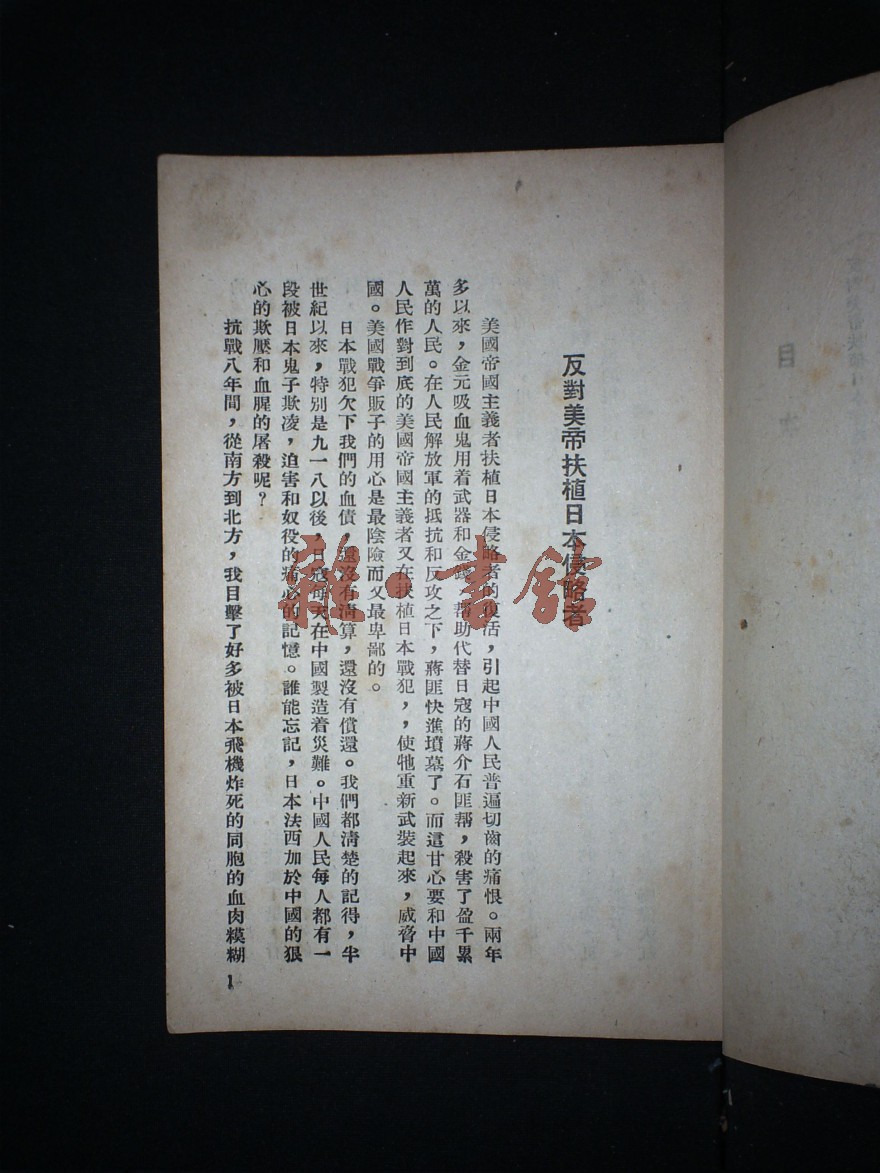 反對美帝扶植日本侵略者
美國帝國主義者扶植日本侵略者的復活，引起中國人民普遍切齒的痛恨。兩年
多以來，金元吸血鬼用着武器和金錢，帮助代替日寇的蔣介石匪帮，殺害了盈千累
萬的人民。在人民解放軍的抵抗和反攻之下，蔣匪快進墳墓了。而這甘心要和中國
人民作對到底的美國帝國主義者又在扶植日本戰犯，，使牠重新武裝起來，威脅中
國。美國戰爭販子的用心是最陰險而又最卑鄙的。
日本戰犯欠下我們的血債，還沒有淸算，還沒有償還。我們都淸楚的記得，半
世紀以來，特別是九一八以後，日寇每天在中國製造着災難。中國人民每人都有一
段被日本鬼子欺凌，迫害和奴役的痛心的記憶。誰能忘記，日本法西加於中國的狠
心的欺壓和血腥的屠殺呢？
抗戰八年間，從南方到北方，我目擊了好多被日本飛機炸死的同胞的血肉糢糊
1
雜·書館
目次